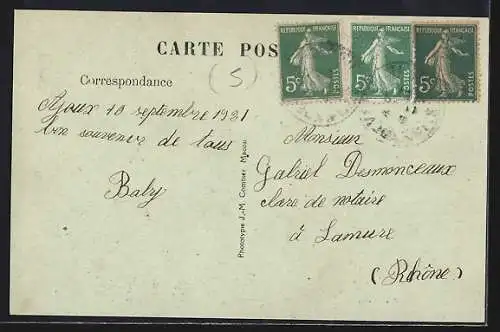 CARTE POS
RÉPUBLIQUE FRANÇAISE
5c
POSTES
RÉPUBLIQUE FRANÇAISE
5c
POSTES
RÉPUBLIQUE FRANÇAISE
5c
POSTES
(S)
Correspondance
Ajoux 10 septembre 1921
bon souvenir de tous
Baby
Phototype J.-M. Combier Macon
Monsieur
Gabriel Desmonceaux
clerc de notaire
à Lamure
(Rhône)